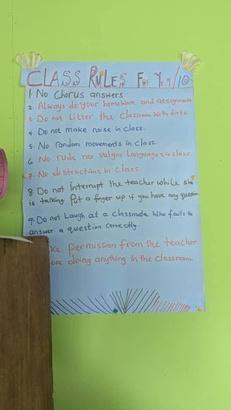 CLASS RULES For Yr 9/10
1. No Chorus answers
2. Always do your homework and assignments
3. Do not litter the classroom with dirts
4. Do not make noise in class.
5. No random movements in class.
6. No rude nor vulgar languages in class.
7. No distractions in class
8. Do not interrupt the teacher while she
is talking. Put a finger up if you have any question
9. Do not Laugh at a classmate who fails to
answer a question correctly.
permission from the teacher
doing anything in the classroom.